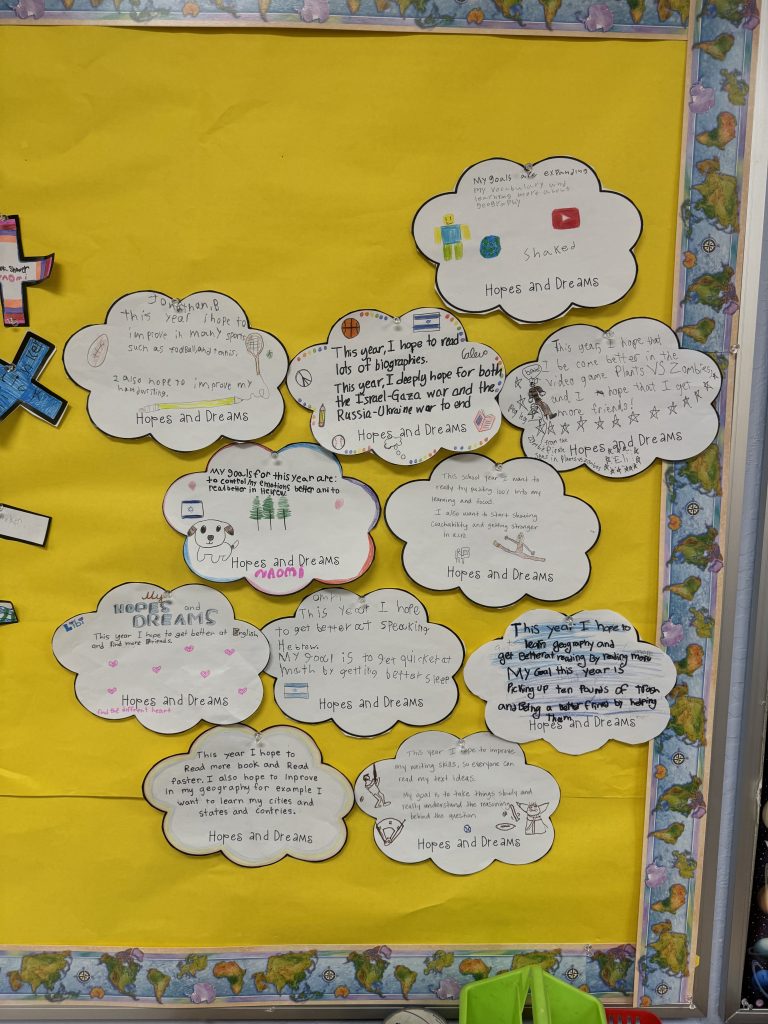 My goals are expanding
my vocabulary and
learning more about
geography
Shaked
Hopes and Dreams
Jonathan.B
This year i hope to
improve in many sports
such as football and tennis.
I also hope to improve my
handwriting.
Hopes and Dreams
This year, I hope to read
lots of biographies.
This year, I deeply hope for both
the Israel-Gaza war and the
Russia-Ukraine war to end
Hopes and Dreams
This year, I hope that
I be come better in the
video game Plants VS Zombies,
and I hope that I get
more friends!
from the
Pirate
Hopes and Dreams
Eli
My goals for this year are:
to control my emotions better and to
read better in Hebrew.
Hopes and Dreams
NAOMI
This school year I want to
really try putting 100% into my
learning and focus.
I also want to start showing
coachability and getting stronger
Hopes and Dreams
My
HOPES and
DREAMS
Libi
This year I hope to get better at English
and find more friends.
Hopes and Dreams
find the different heart
This Year I hope
to get better at speaking
Hebrew.
My goal is to get quicker at
math by getting better sleep
Hopes and Dreams
This year I hope to
learn geography and
get Better at reading By reading more
My Goal this year is
Picking up ten Pounds of Trash
and Being a better friend by helping
Them.
Hopes and Dreams
This year I hope to
Read more book and Read
faster. I also hope to inprove
in my geography for example I
want to learn my cities and
states and contries.
Hopes and Dreams
This year I hope to improve
my writing skills, so everyone can
read my text ideas.
My goal is to take things slowly and
really understand the reasoning
behind the question
Hopes and Dreams